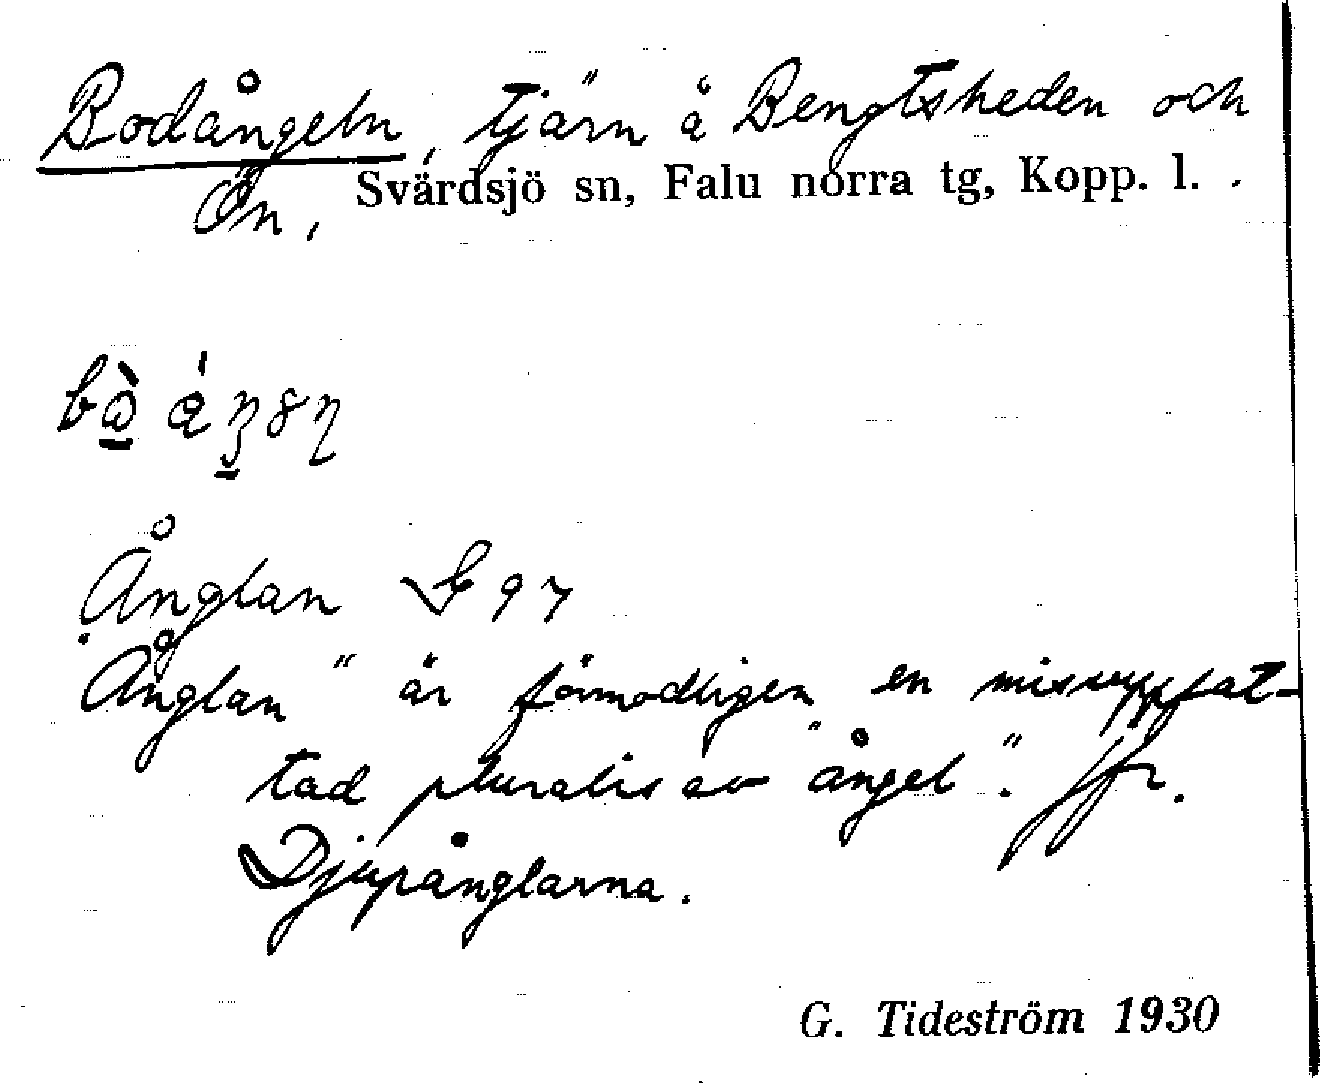 Bodångeln, tjärn å Bengtsheden och
Ön, Svärdsjö sn, Falu norra tg, Kopp. l.
Ånglan G 97
"Ånglan" är förmodligen en missuppfat-
tad pluralis av "ångel". Jfr.
Djupånglarna.
G. Tideström 1930